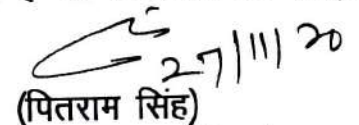 27/11/20
(पितराम सिंह)